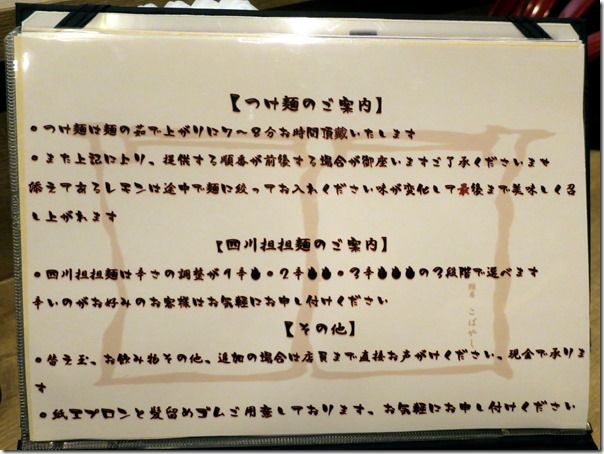 【つけ麺のご案内】
・つけ麺は麺の茹で上がりに7～8分お時間頂戴いたします
・また上記により、提供する順番が前後する場合が御座いますご了承くださいます
添えてあるレモンは途中で麺に絞ってお入れください味が変化して最後まで美味しく召
し上がれます
【四川担担麺のご案内】
・四川担担麺は辛さの調整が1辛🌶・2辛🌶🌶・3辛🌶🌶🌶の3段階で選べます
辛いのがお好みのお客様はお気軽にお申し付けください
【その他】
・替え玉、お飲み物その他、追加の場合は店員まで直接お声がけください、現金で承りま
す
・紙エプロンと髪留めゴムご用意しております、お気軽にお申し付けください
麺屋 こばやし